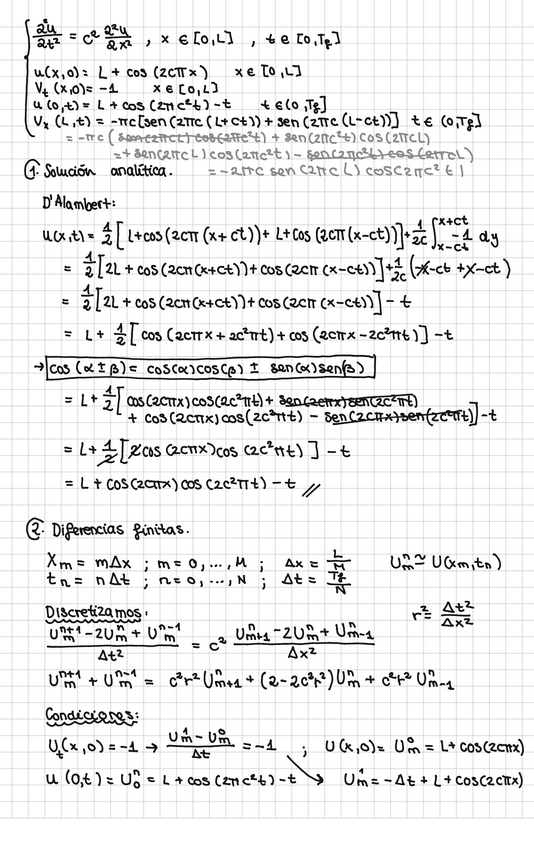 ∂²u/∂t² = c² ∂²u/∂x² , x ∈ [0,L] , t ∈ [0,T_f]
u(x,0) = L + cos (2cπx) x ∈ [0,L]
V_t (x,0) = -1 x ∈ [0,L]
u (0,t) = L + cos (2πc²t) - t t ∈ (0,T_f]
V_x (L,t) = -πc[sen(2πc(L+ct)) + sen(2πc(L-ct))] t ∈ (0,T_f]
= -πc ( sen(2πcL) cos(2πc²t) + sen(2πc²t) cos(2πcL)
=+ sen(2πcL) cos(2πc²t) - sen(2πc²t) cos(2πcL)
① Solución analítica. = -2πc sen(2πcL) cos(2πc²t)
D'Alambert:
u(x,t) = 1/2 [ L+cos(2cπ(x+ct)) + L+cos(2cπ(x-ct)) ] + 1/2c ∫_{x-ct}^{x+ct} -1 dy
= 1/2 [ 2L + cos(2cπ(x+ct)) + cos(2cπ(x-ct)) ] + 1/2c (-x-ct+x-ct)
= 1/2 [ 2L + cos(2cπ(x+ct)) + cos(2cπ(x-ct)) ] - t
= L + 1/2 [ cos (2cπx + 2c²πt) + cos(2cπx - 2c²πt) ] - t
→ cos(α±β) = cos(α)cos(β) ± sen(α)sen(β)
= L + 1/2 [ cos(2cπx)cos(2c²πt) + sen(2cπx)sen(2c²πt)
+ cos(2cπx)cos(2c²πt) - sen(2cπx)sen(2c²πt) ] - t
= L + 1/2 [ 2cos(2cπx)cos(2c²πt) ] - t
= L + cos(2cπx) cos(2c²πt) - t //
② Diferencias finitas.
X_m = mΔx ; m = 0, ..., M ; Δx = L/M U_m^n ≃ U(x_m, t_n)
t_n = nΔt ; n = 0, ..., N ; Δt = T_f/N
Discretizamos: r² = Δt²/Δx²
(U_m^{n+1} - 2U_m^n + U_m^{n-1})/Δt² = c² (U_{m+1}^n - 2U_m^n + U_{m-1}^n)/Δx²
U_m^{n+1} + U_m^{n-1} = c²r² U_{m+1}^n + (2 - 2c²r²) U_m^n + c²r² U_{m-1}^n
Condiciones:
U_t(x,0) = -1 → (U_m^1 - U_m^0)/Δt = -1 ; U(x,0) = U_m^0 = L + cos(2cπx)
u (0,t) = U_0^n = L + cos(2πc²t) - t U_m^1 = -Δt + L + cos(2cπx)